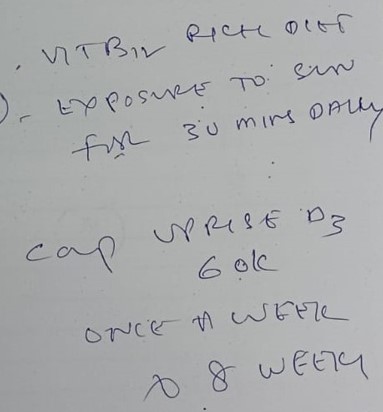 . VITB12 RICH DIET
). - EXPOSURE TO SUN
for 30 MINS DAILY
cap UPRISE D3
60K
ONCE A WEEK
x 8 WEEK